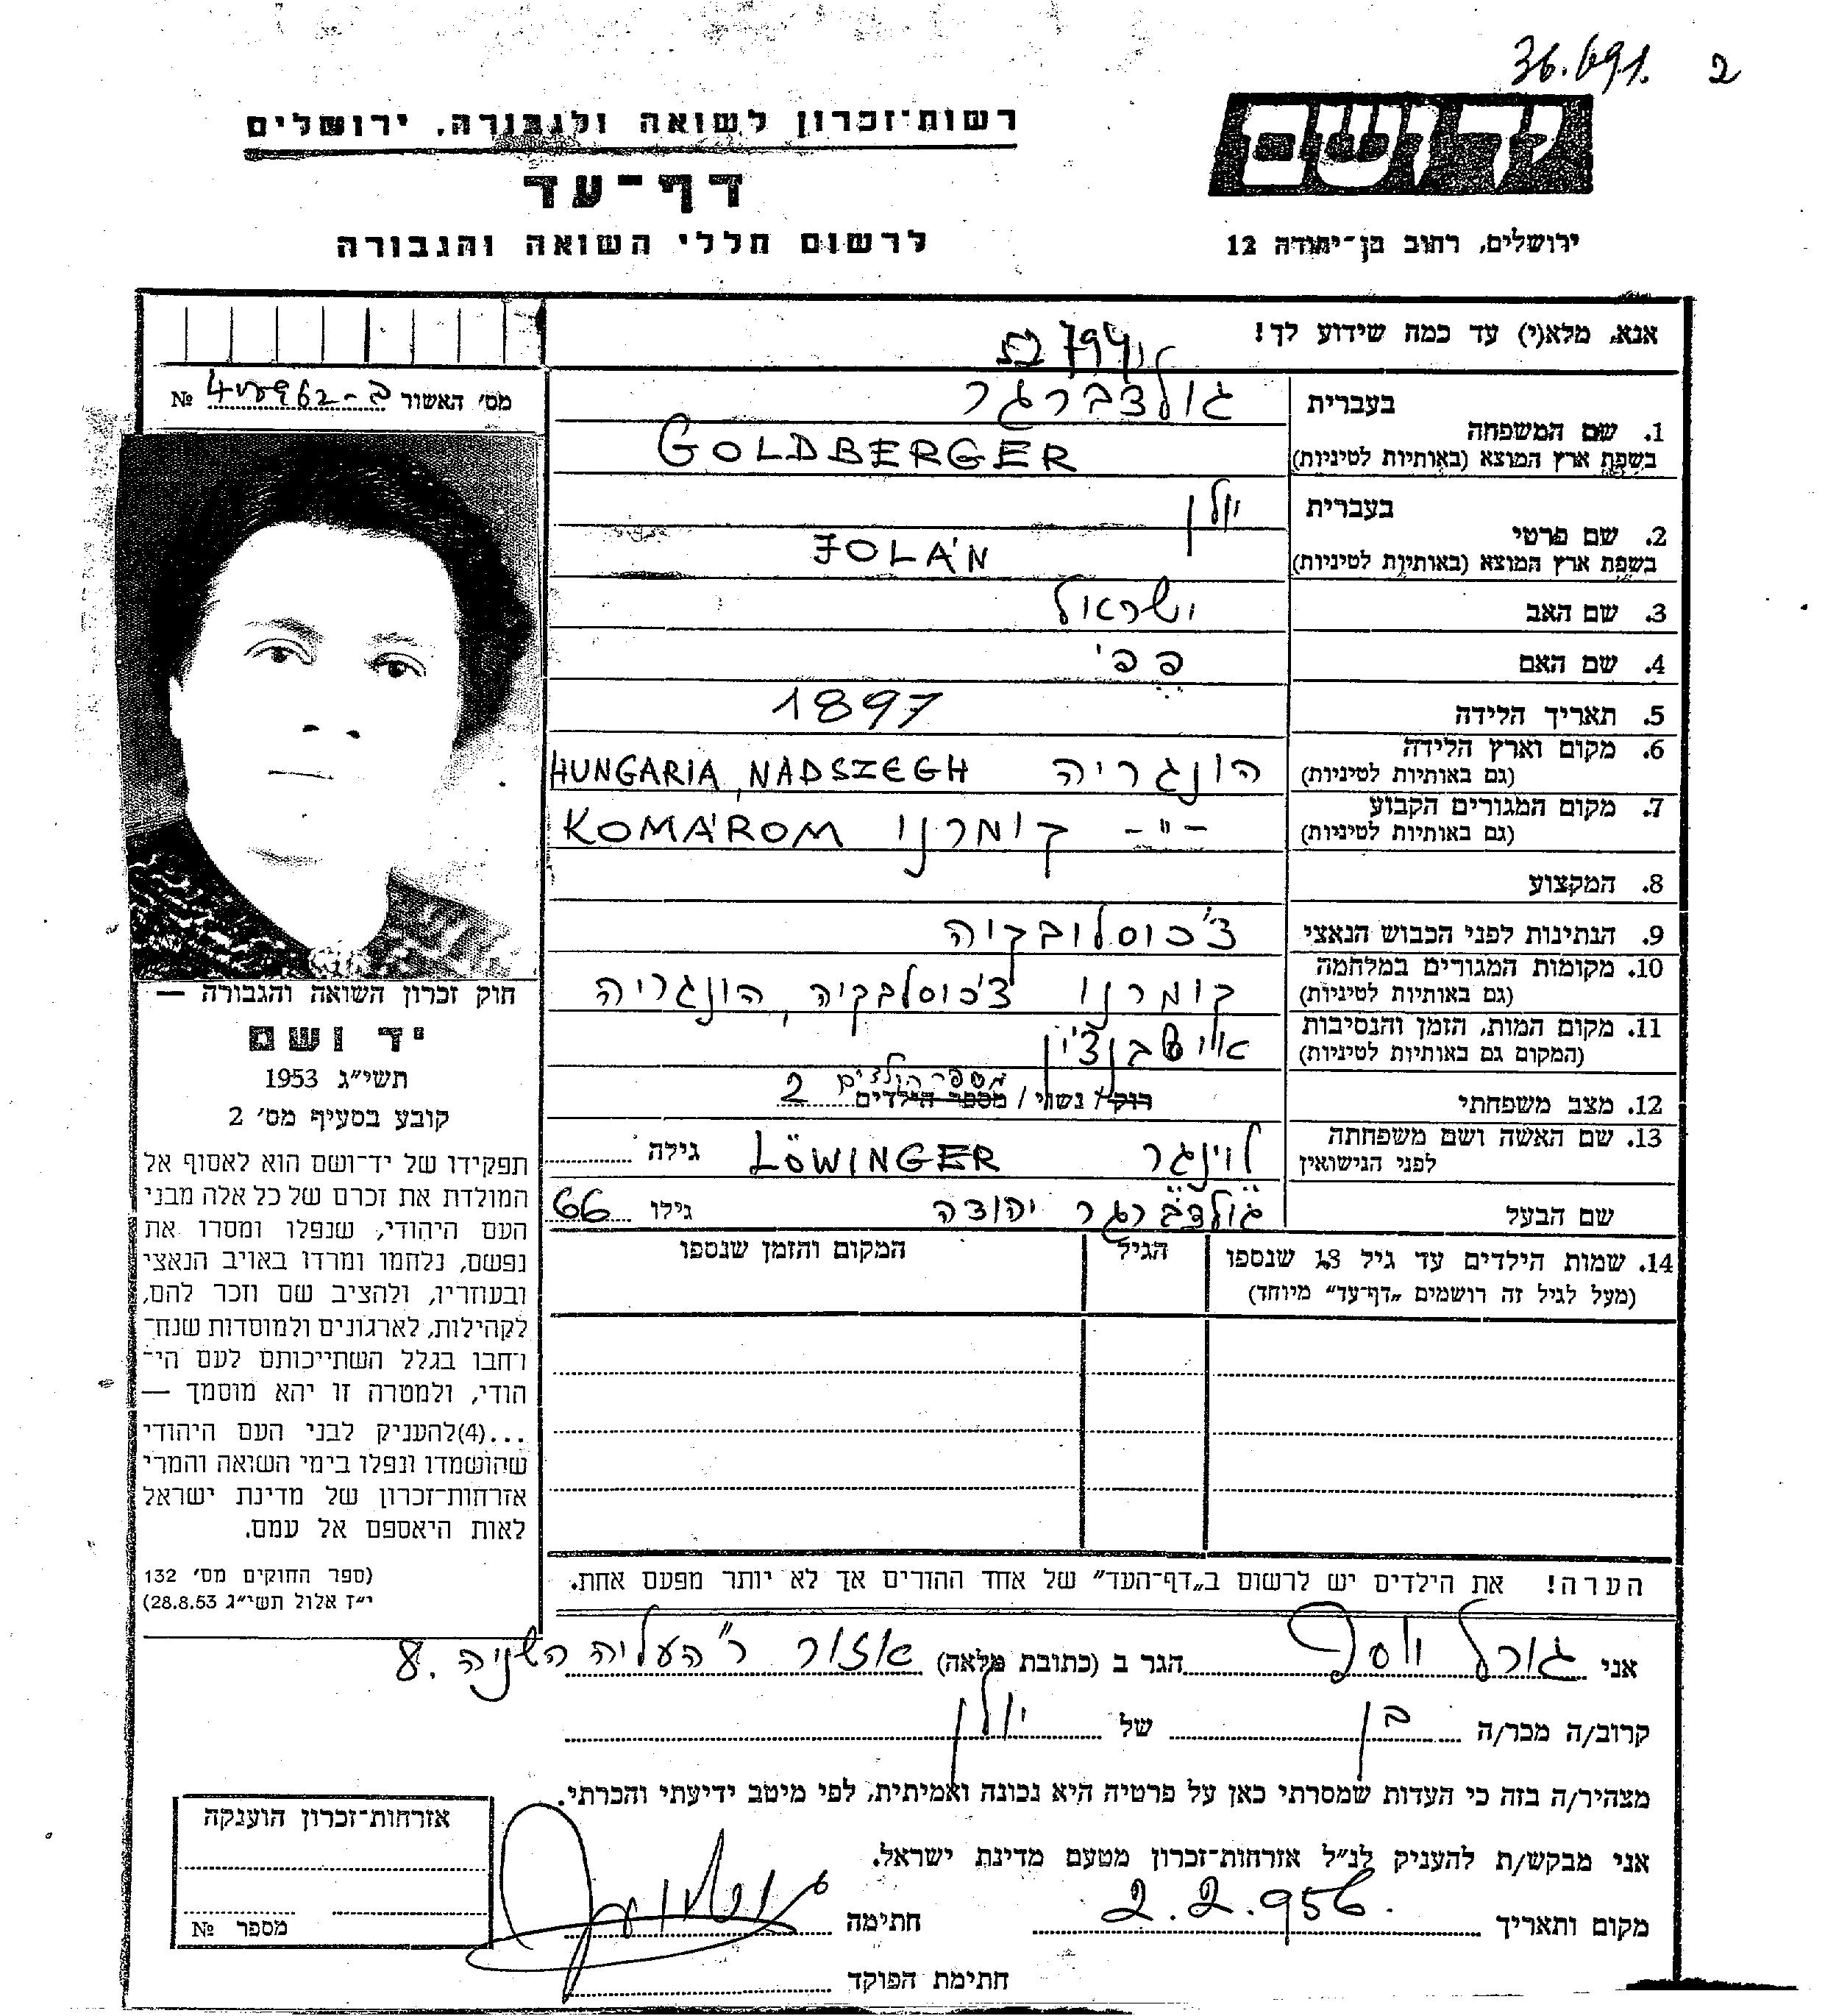 36.691. 2
יד ושם
רשות־זכרון לשואה ולגבורה, ירושלים
דף־עד
לרשום חללי השואה והגבורה
ירושלים, רחוב בן־יהודה 12
אנא, מלא(י) עד כמה שידוע לך!
794
מס׳ האשור №
בעברית גולדברגר
1. שם המשפחה
בשפת ארץ המוצא (באותיות לטיניות) GOLDBERGER
בעברית יולן
2. שם פרטי
בשפת ארץ המוצא (באותיות לטיניות) JOLÁN
3. שם האב ישראל
4. שם האם פפי
5. תאריך הלידה 1897
6. מקום וארץ הלידה
(גם באותיות לטיניות) הונגריה HUNGARIA, NADSZEGH
7. מקום המגורים הקבוע
(גם באותיות לטיניות) -"- קומרנו KOMÁROM
8. המקצוע
9. הנתינות לפני הכבוש הנאצי צ'כוסלובקיה
10. מקומות המגורים במלחמה
(גם באותיות לטיניות) קומרנו צ'כוסלבקיה, הונגריה
11. מקום המות, הזמן והנסיבות
(המקום גם באותיות לטיניות)
מספר הילדים
12. מצב משפחתי רוק/ נשוי / מספר הילדים 2
13. שם האשה ושם משפחתה
לפני הנישואין לוינגר LÖWINGER גילה
שם הבעל גולדברגר יהודה גילו 66
14. שמות הילדים עד גיל 18 שנספו הגיל המקום והזמן שנספו
(מעל לגיל זה רושמים „דף־עד" מיוחד)
חוק זכרון השואה והגבורה —
יד ושם
תשי״ג 1953
קובע בסעיף מס׳ 2
תפקידו של יד־ושם הוא לאסוף אל
המולדת את זכרם של כל אלה מבני
העם היהודי, שנפלו ומסרו את
נפשם, נלחמו ומרדו באויב הנאצי
ובעוזריו, ולהציב שם וזכר להם,
לקהילות, לארגונים ולמוסדות שנח־
רבו בגלל השתייכותם לעם הי־
הודי, ולמטרה זו יהא מוסמך —
...(4)להעניק לבני העם היהודי
שהושמדו ונפלו בימי השואה והמרי
אזרחות־זכרון של מדינת ישראל
לאות היאספם אל עמם.
(ספר החוקים מס׳ 132
י״ז אלול תשי״ג 28.8.53)
הערה! את הילדים יש לרשום ב„דף־העד" של אחד ההורים אך לא יותר מפעם אחת.
אני גורל יוסף הגר ב (כתובת מלאה) אזור ר' העליה השניה 8.
קרוב/ה מכר/ה בן של יולן
מצהיר/ה בזה כי העדות שמסרתי כאן על פרטיה היא נכונה ואמיתית, לפי מיטב ידיעתי והכרתי.
אני מבקש/ת להעניק לנ״ל אזרחות־זכרון מטעם מדינת ישראל.
מקום ותאריך 2.2.956. חתימה
חתימת הפוקד
אזרחות־זכרון הוענקה
מספר №